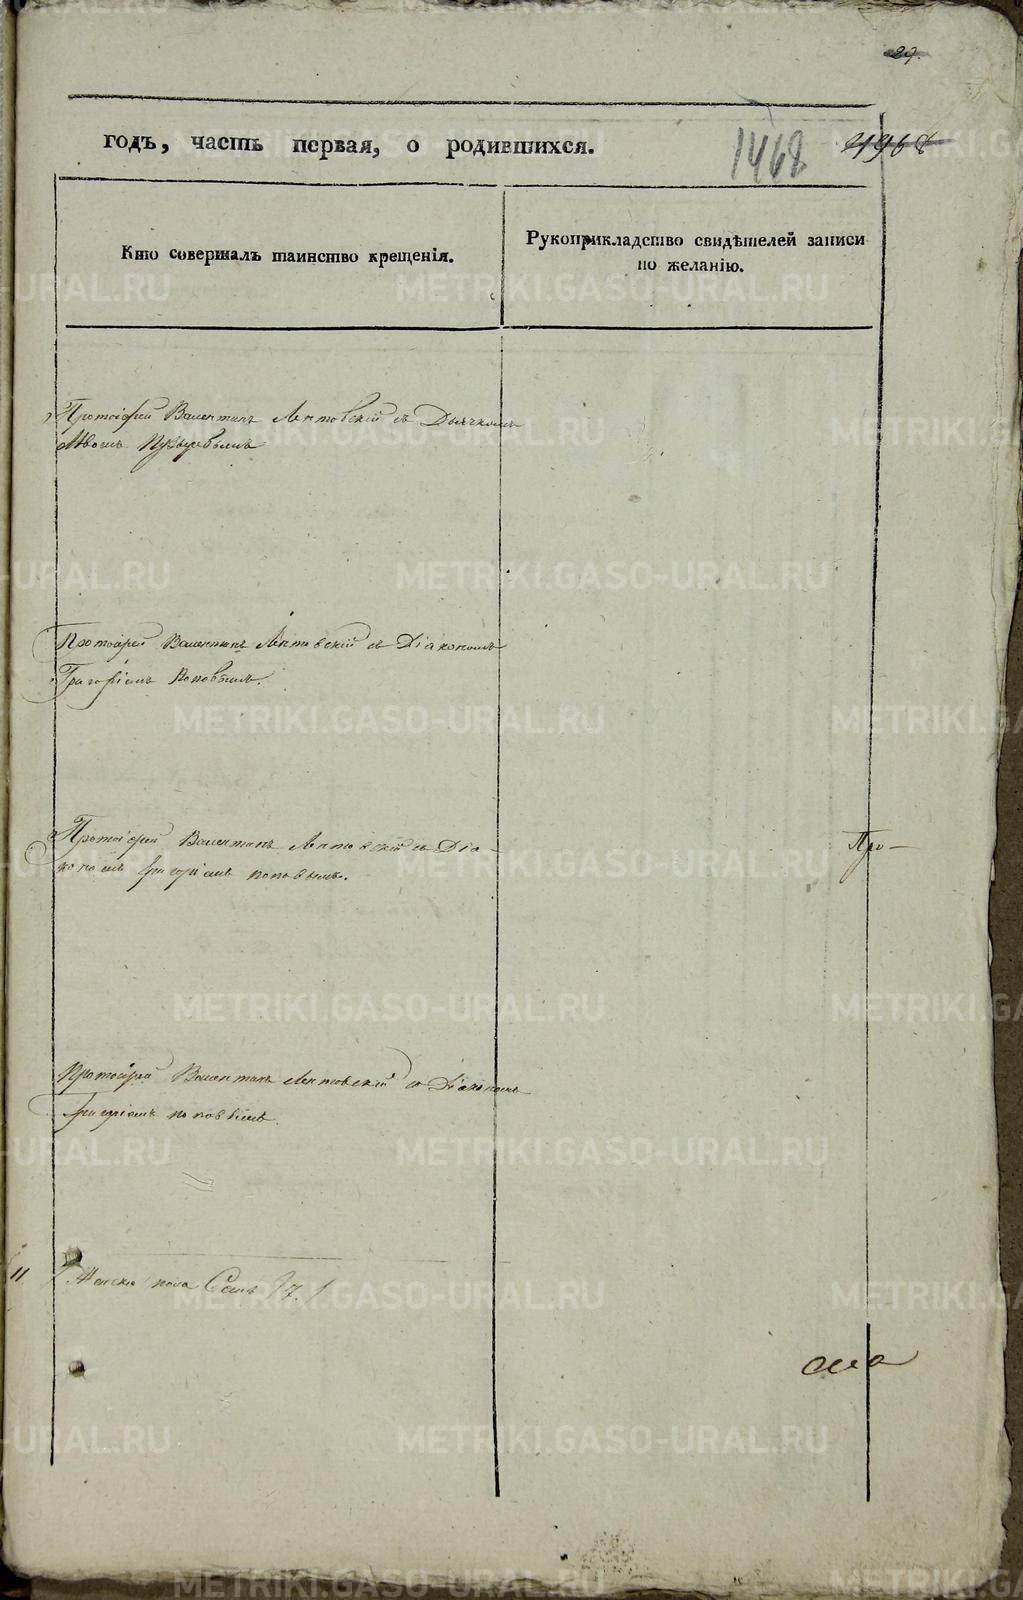 27.
годъ, часть первая, о родившихся.
1468
4968
Кто совершалъ таинство крещенія.
Рукоприкладство свидѣтелей записи
по желанію.
Протоіерей Валентинъ Лятовскій съ Дьячкомъ
Протоіерей Валентинъ Лятовскій съ Діакономъ
Григоріемъ Поповымъ.
Протоіерей Валентинъ Лятовскій съ Діа-
кономъ Григоріемъ Поповымъ.
Про-
Протоіерей Валентинъ Лятовскій съ Діакономъ
Григоріемъ Поповымъ.
11 Женска пола Семь 7.
METRIKI.GASO-URAL.RU